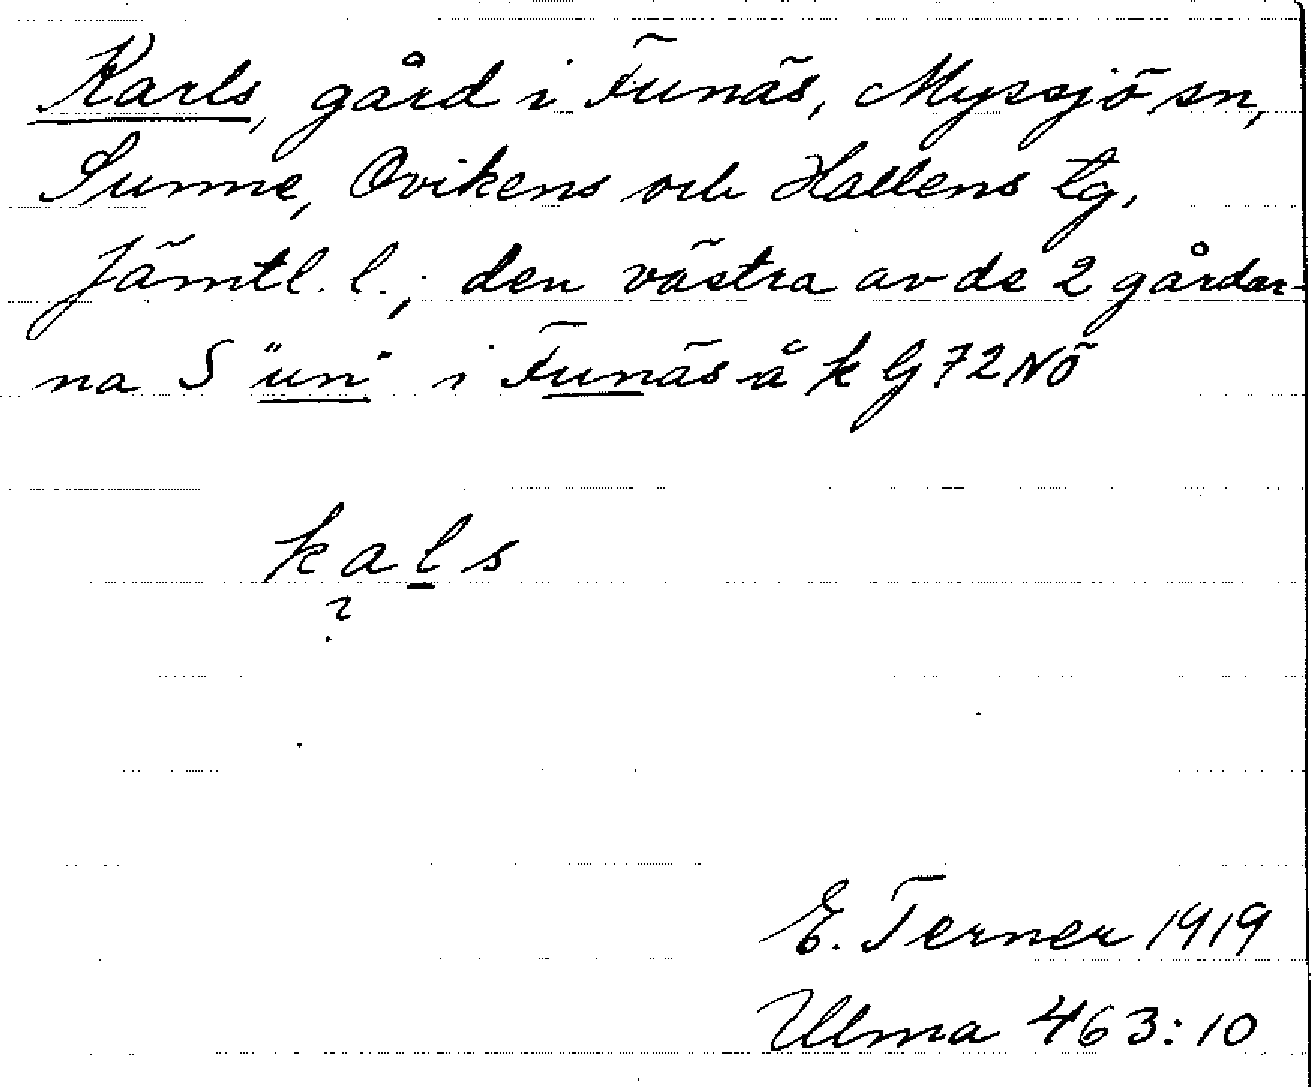 Karls, gård i Funäs, Myssjö sn,
Sunne, Ovikens och Hallens tg.
Jämtl. l.; den västra av de 2 gårdar-
na S "un" i Funäs å k G72NÖ
kals
?
E. Terner 1919
Ulma 463:10